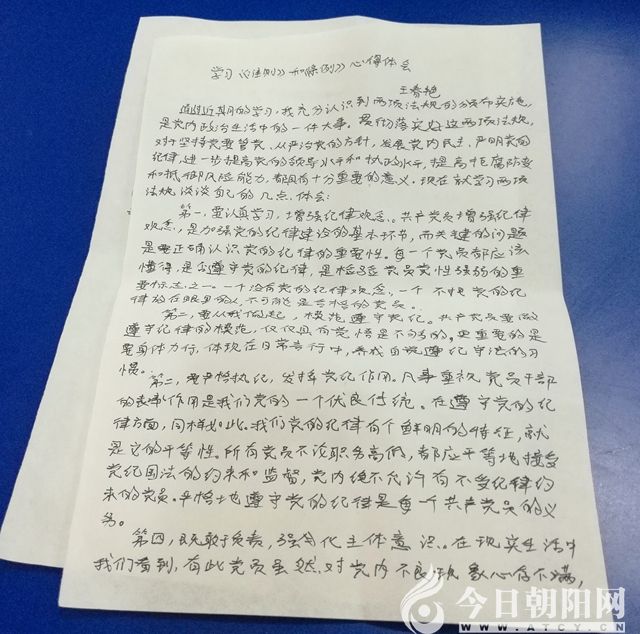 学习《准则》和《条例》心得体会
王春艳
通过近期的学习，我充分认识到两项法规的颁布实施，
是党内政治生活中的一件大事。贯彻落实好这两项法规，
对于坚持党要管党、从严治党的方针，发展党内民主、严明党的
纪律，进一步提高党的领导水平和执政水平，提高拒腐防变
和抵御风险能力，都具有十分重要的意义。现在就学习两项
法规谈谈自己的几点体会：
第一，要认真学习，增强纪律观念。共产党员增强纪律
观念，是加强党的纪律建设的基本环节，而关键的问题
是要正确认识党的纪律的重要性。每一个党员都应该
懂得，是否遵守党的纪律，是检验党员党性强弱的重
要标志之一。一个没有党的纪律观念，一个不把党的纪
律放在眼里的人，不可能是合格的党员。
第二，要从我做起，模范遵守党纪。共产党员要做
遵守纪律的模范，仅仅具有觉悟是不够的。更重要的是
要身体力行，体现在日常言行中，养成自觉遵纪守法的习
惯。
第三，要严格执纪，发挥党纪作用。凡事重视党员干部
的表率作用是我们党的一个优良传统。在遵守党的纪
律方面，同样如此。我们党的纪律有个鲜明的特征，就
是它的平等性。所有党员不论职务高低，都应平等地接受
党纪国法的约束和监督，党内绝不允许有不受纪律约
束的党员。严格地遵守党的纪律是每个共产党员的义
务。
第四，既敢于负责，强化主体意识。在现实生活中
我们看到，有些党员虽然对党内不良现象心存不满，
今日朝阳网
WWW.ATCY.CN